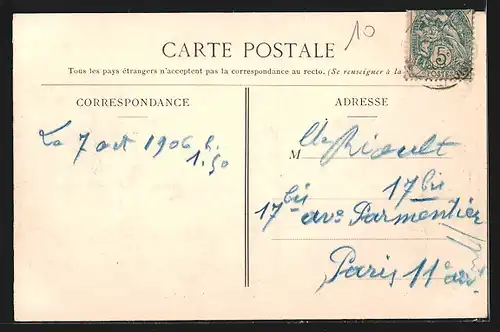 10
CARTE POSTALE
Tous les pays étrangers n'acceptent pas la correspondance au recto. (Se renseigner à la
CORRESPONDANCE
Le 7 oct 1906 h.
1.50
ADRESSE
M lle Rioult
17 bis
17 bis ave Parmentier
Paris 11e arr
5